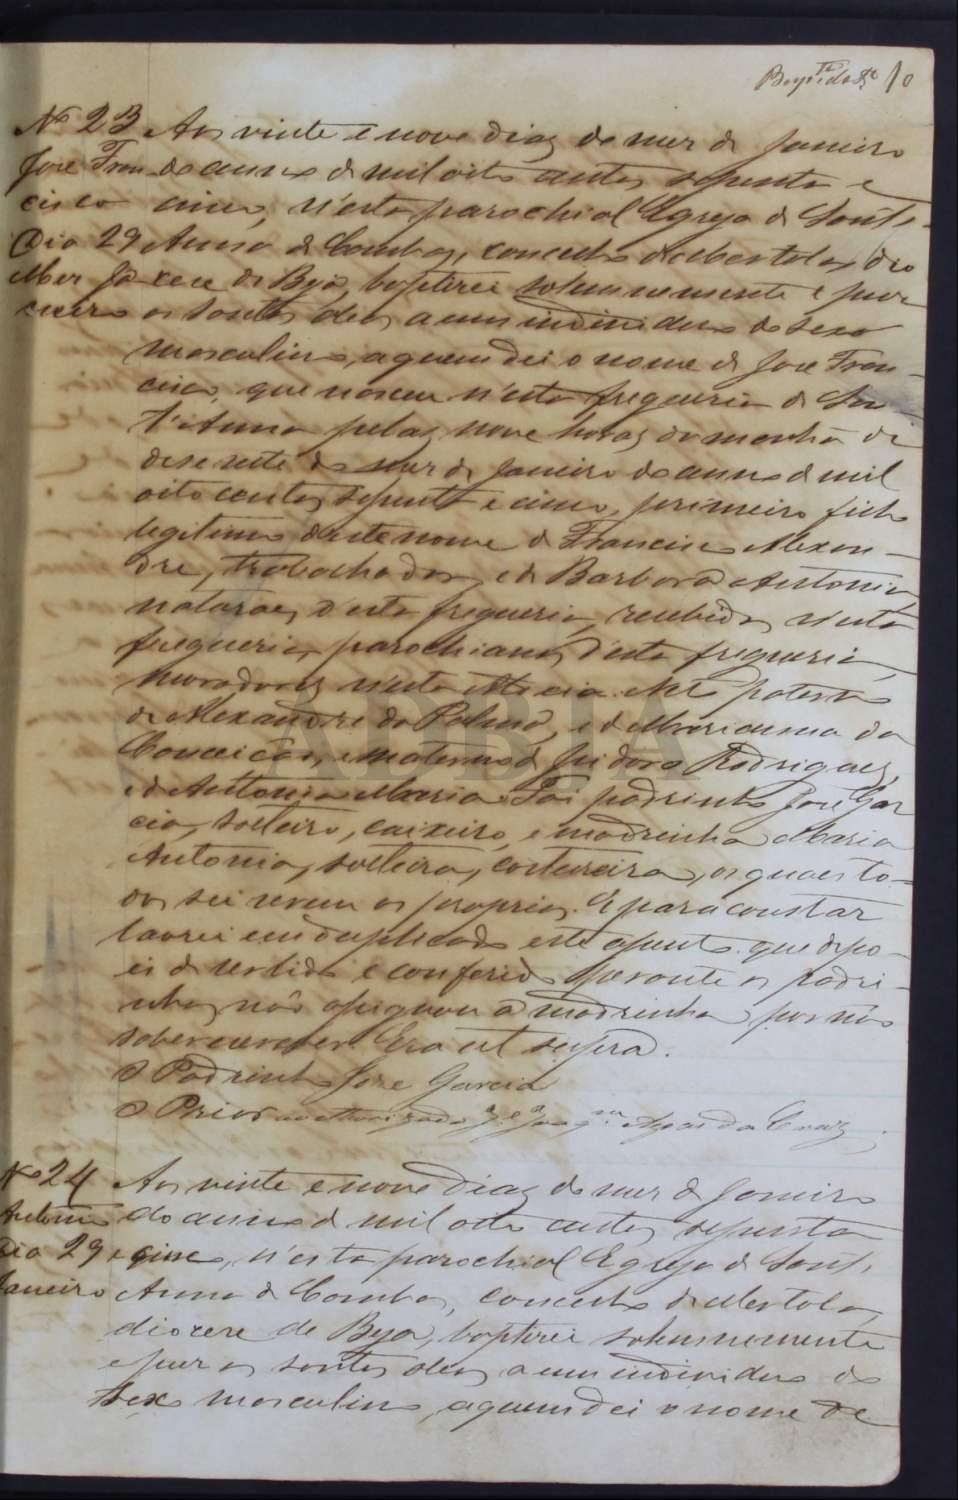 10
Nº 23 Aos vinte e nove dias do mez de Janeiro
José Fran- do anno de mil oito centos septenta e
cisco cinco, n'esta parochial Egreja de Sant'
Dia 29 Anna de Cambas, concelho de Mertola, dio
Mez Ja- cese de Beja, baptizei solemnemente e puz
neiro os santos oleos a um individuo do sexo
masculino, a quem dei o nome de José Fran-
cisco, que nasceu n'esta freguezia de San-
t'Anna pelas nove horas da manhã de
desesete do mez de Janeiro do anno de mil
oito centos septenta e cinco, primeiro filho
legitimo d'este nome de Francisco Alexan-
dre, trabalhador, e de Barbara Antonia,
naturaes d'esta freguezia, recebidos n'esta
freguezia, parochianos d'esta freguezia,
moradores n'esta Aldeia. Neto paterno
de Alexandre da Palma, e de Marianna da
Conceição, e materno de Izidoro Rodrigues,
e de Antonia Maria. Foi padrinho José Gar
cia, solteiro, caixeiro, e madrinha Maria
Antonia, solteira, costureira, os quaes to-
dos sei serem os proprios. E para constar
lavrei em duplicado este assento que depo-
is de ser lido e conferido perante os padri-
nhos, não assignou a madrinha por não
saber escrever. Era ut supra.
O Padrinho José Garcia
O Prior da Cruz
Nº 24 Aos vinte e nove dias do mez de Janeiro
Antonio do anno de mil oito centos septenta
Dia 29 e cinco, n'esta parochial Egreja de Sant'
Janeiro Anna de Cambas, concelho de Mertola,
diocese de Beja, baptizei solemnemente
e puz os santos oleos a um individuo do
sexo masculino, a quem dei o nome de
ADBJA